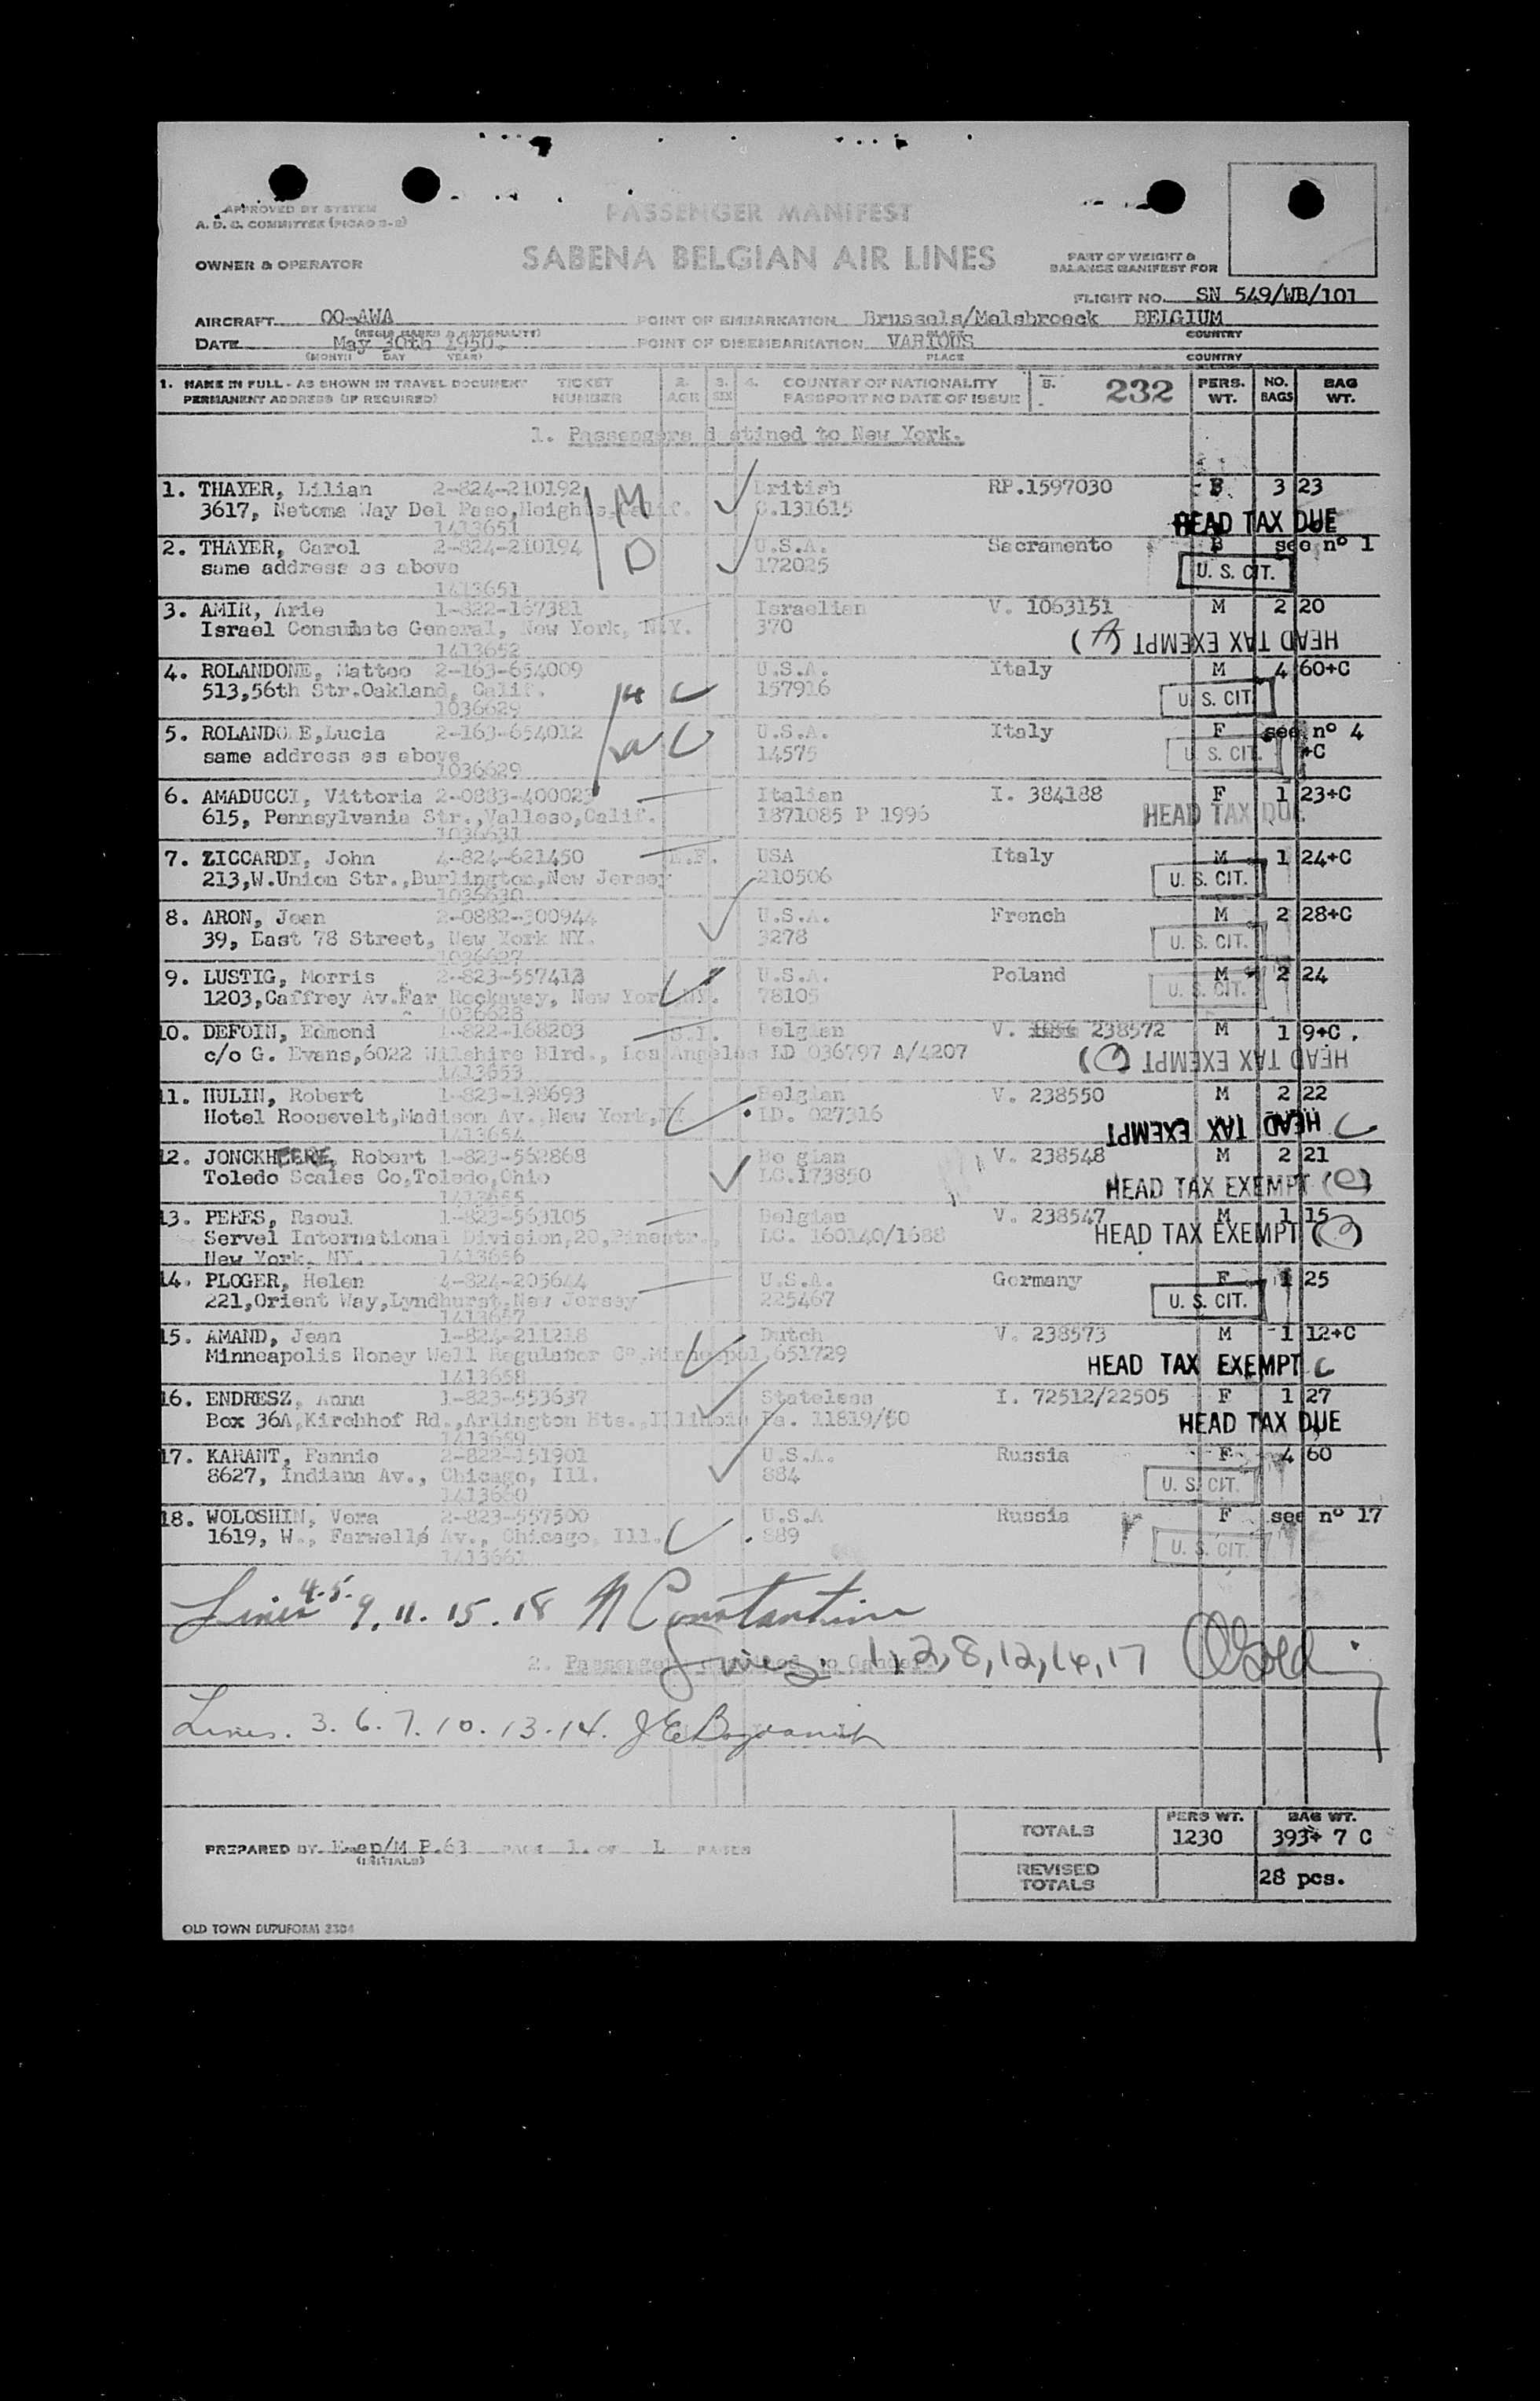 APPROVED BY SYSTEM
A. D. C. COMMITTEE (PICAO 3-2)
PASSENGER MANIFEST
SABENA BELGIAN AIR LINES
OWNER & OPERATOR
PART OF WEIGHT &
BALANCE MANIFEST FOR
FLIGHT NO. SN 549/WB/101
AIRCRAFT OO-AWA POINT OF EMBARKATION Brussels/Melsbroeck BELGIUM
(REGIS. MARKS & NATIONALITY) PLACE COUNTRY
DATE May 30th 1950. POINT OF DISEMBARKATION VARIOUS
(MONTH DAY YEAR) PLACE COUNTRY
1. NAME IN FULL - AS SHOWN IN TRAVEL DOCUMENT TICKET 2. 3. 4. COUNTRY OF NATIONALITY 5. 232 PERS. NO. BAG
PERMANENT ADDRESS (IF REQUIRED) NUMBER AGE SEX PASSPORT NO DATE OF ISSUE WT. BAGS WT.
1. Passengers d stined to New York.
1. THAYER, Lilian 2-824-210192 M British RP.1597030 B 3 23
3617, Netoma Way Del Paso,Heights,Calif. C.131615
1413651 HEAD TAX DUE
2. THAYER, Carol 2-824-210194 D U.S.A. Sacramento B see nº 1
same address as above 172025 U. S. CIT.
1413651
3. AMIR, Arie 1-822-167381 Israelien V. 1063151 M 2 20
Israel Consulate General, New York, N.Y. 370 HEAD TAX EXEMPT (A)
1413652
4. ROLANDONE, Matteo 2-163-654009 U.S.A. Italy M 4 60+C
513,56th Str.Oakland, Calif. H C 157916 U. S. CIT.
1036629
5. ROLANDO E,Lucia 2-163-654012 U.S.A. Italy F see nº 4
same address as above W C 14575 U. S. CIT. +C
1036629
6. AMADUCCI, Vittoria 2-0883-400023 Italian I. 384188 F 1 23+C
615, Pennsylvania Str.,Valleso,Calif. 1871085 P 1996 HEAD TAX DUE
1036631
7. ZICCARDI, John 4-824-621450 USA Italy M 1 24+C
213,W.Union Str.,Burlington,New Jersey 210506 U. S. CIT.
1036630
8. ARON, Jean 2-0882-300944 U.S.A. French M 2 28+C
39, East 78 Street, New York NY. 3278 U. S. CIT.
1036627
9. LUSTIG, Morris 2-823-557413 U.S.A. Poland M 2 24
1203,Caffrey Av.Far Rockaway, New York NY. 78105 U. S. CIT.
1036628
10. DEFOIN, Edmond 1-822-168203 Belgian V. 238572 M 1 9+C .
c/o G. Evans,6022 Wilshire Blrd., Los Angeles LD 036797 A/4207 HEAD TAX EXEMPT (C)
1413653
11. HULIN, Robert 1-823-198693 Belgian V. 238550 M 2 22
Hotel Roosevelt,Madison Av.,New York,NY. LD. 027316 HEAD TAX EXEMPT C
1413654
12. JONCKHEERE, Robert 1-823-562868 Be gian V. 238548 M 2 21
Toledo Scales Co,Toledo,Ohio LC.173850 HEAD TAX EXEMPT (C)
1413655
13. PERES, Raoul 1-823-563105 Belgian V. 238547 M 1 15
Servel International Division,20,Pinestr., LC. 160140/1688 HEAD TAX EXEMPT (C)
New York, NY. 1413656
14. PLOGER, Helen 4-824-205644 U.S.A. Germany F 1 25
221,Orient Way,Lyndhurst,New Jersey 225467 U. S. CIT.
1413657
15. AMAND, Jean 1-824-211218 Dutch V. 238573 M 1 12+C
Minneapolis Honey Well Regulator Co,Minneapol,651729 HEAD TAX EXEMPT C
1413658
16. ENDRESZ, Anna 1-823-553637 Stateless I. 72512/22505 F 1 27
Box 36A,Kirchhof Rd.,Arlington Hts.,Illinois Pa. 11819/50 HEAD TAX DUE
1413659
17. KARANT, Fannie 2-822-151901 U.S.A. Russia F 4 60
8627, Indiana Av., Chicago, Ill. 884 U. S. CIT.
1413660
18. WOLOSHIN, Vera 2-823-557500 U.S.A Russia F see nº 17
1619, W., Farwell Av., Chicago, Ill. 889 U. S. CIT.
1413661
Lines 4.5. 9. 11. 15. 18 N Constantine
2. Passenge to Gander
Lines 1,2,8,12,16,17
Lines. 3. 6. 7. 10. 13. 14.
TOTALS PERS WT. 1230 BAG WT. 393+ 7 C
PREPARED BY P.63 PAGE 1. OF 1 PAGES
(INITIALS)
REVISED TOTALS 28 pcs.
OLD TOWN DUPLIFORM 3304